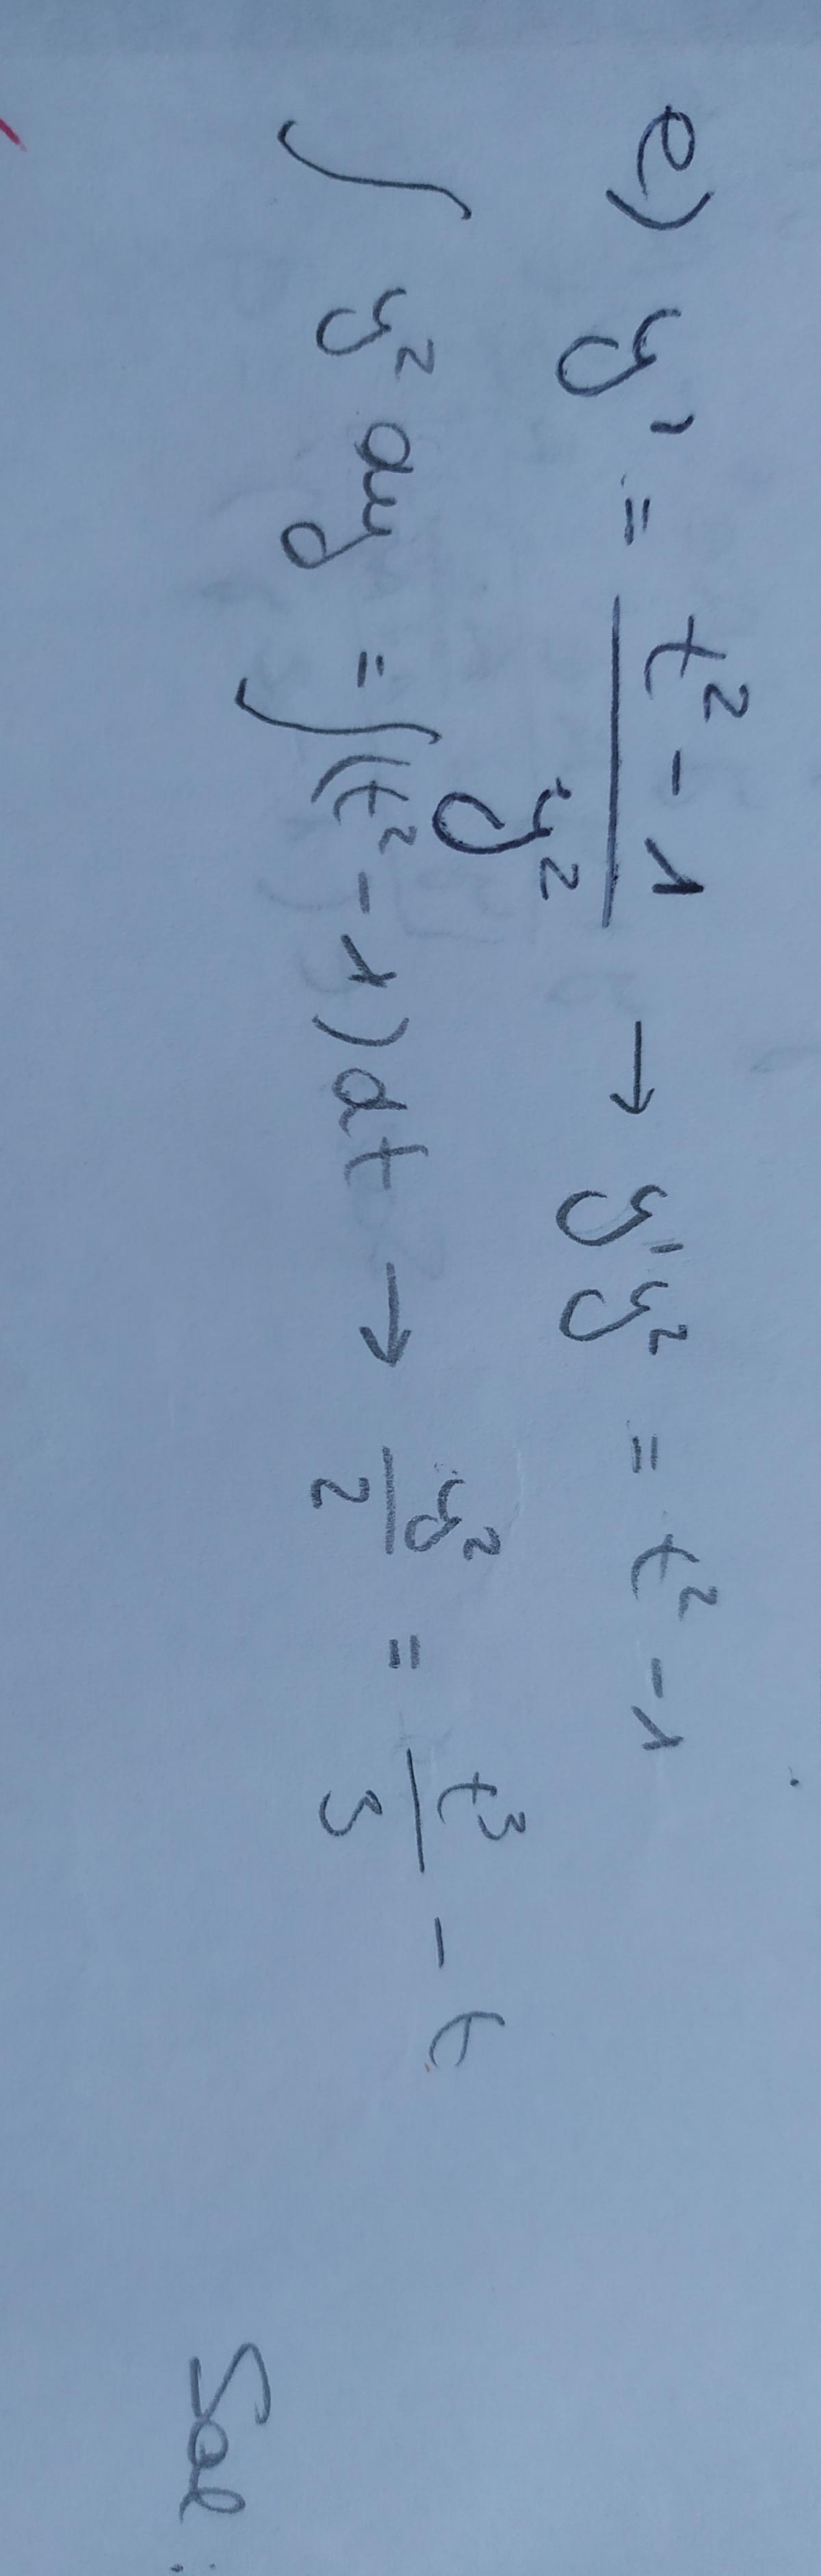 e) y' = (t² - 1)/y² → y'y² = t² - 1
∫ y² dy = ∫(t² - 1)dt → y²/2 = t³/3 - t
Sol: